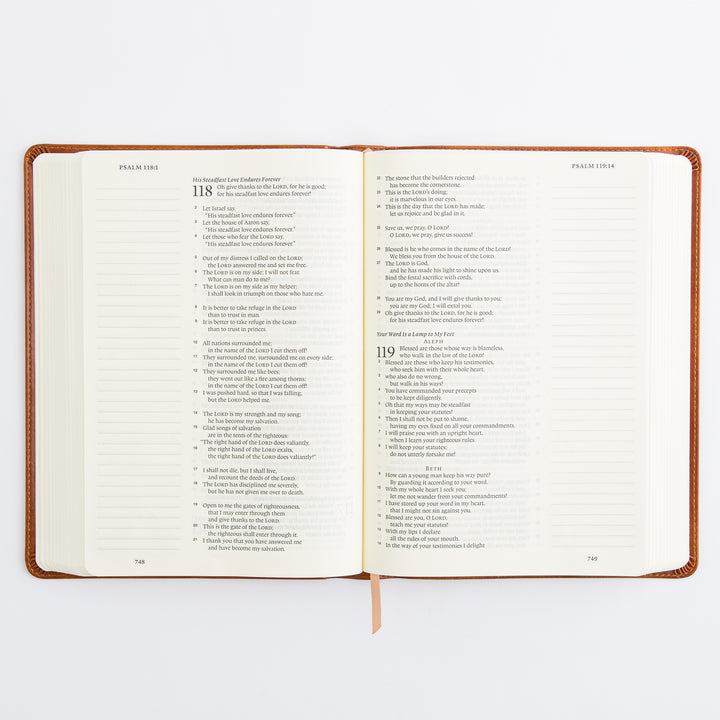 PSALM 118:1
His Steadfast Love Endures Forever
118 Oh give thanks to the LORD, for he is good;
for his steadfast love endures forever!
2 Let Israel say,
“His steadfast love endures forever.”
3 Let the house of Aaron say,
“His steadfast love endures forever.”
4 Let those who fear the LORD say,
“His steadfast love endures forever.”
5 Out of my distress I called on the LORD;
the LORD answered me and set me free.
6 The LORD is on my side; I will not fear.
What can man do to me?
7 The LORD is on my side as my helper;
I shall look in triumph on those who hate me.
8 It is better to take refuge in the LORD
than to trust in man.
9 It is better to take refuge in the LORD
than to trust in princes.
10 All nations surrounded me;
in the name of the LORD I cut them off!
11 They surrounded me, surrounded me on every side;
in the name of the LORD I cut them off!
12 They surrounded me like bees;
they went out like a fire among thorns;
in the name of the LORD I cut them off!
13 I was pushed hard, so that I was falling,
but the LORD helped me.
14 The LORD is my strength and my song;
he has become my salvation.
15 Glad songs of salvation
are in the tents of the righteous:
“The right hand of the LORD does valiantly,
16 the right hand of the LORD exalts,
the right hand of the LORD does valiantly!”
17 I shall not die, but I shall live,
and recount the deeds of the LORD.
18 The LORD has disciplined me severely,
but he has not given me over to death.
19 Open to me the gates of righteousness,
that I may enter through them
and give thanks to the LORD.
20 This is the gate of the LORD;
the righteous shall enter through it.
21 I thank you that you have answered me
and have become my salvation.
748
PSALM 119:14
22 The stone that the builders rejected
has become the cornerstone.
23 This is the LORD's doing;
it is marvelous in our eyes.
24 This is the day that the LORD has made;
let us rejoice and be glad in it.
25 Save us, we pray, O LORD!
O LORD, we pray, give us success!
26 Blessed is he who comes in the name of the LORD!
We bless you from the house of the LORD.
27 The LORD is God,
and he has made his light to shine upon us.
Bind the festal sacrifice with cords,
up to the horns of the altar!
28 You are my God, and I will give thanks to you;
you are my God; I will extol you.
29 Oh give thanks to the LORD, for he is good;
for his steadfast love endures forever!
Your Word Is a Lamp to My Feet
ALEPH
119 Blessed are those whose way is blameless,
who walk in the law of the LORD!
2 Blessed are those who keep his testimonies,
who seek him with their whole heart,
3 who also do no wrong,
but walk in his ways!
4 You have commanded your precepts
to be kept diligently.
5 Oh that my ways may be steadfast
in keeping your statutes!
6 Then I shall not be put to shame,
having my eyes fixed on all your commandments.
7 I will praise you with an upright heart,
when I learn your righteous rules.
8 I will keep your statutes;
do not utterly forsake me!
BETH
9 How can a young man keep his way pure?
By guarding it according to your word.
10 With my whole heart I seek you;
let me not wander from your commandments!
11 I have stored up your word in my heart,
that I might not sin against you.
12 Blessed are you, O LORD;
teach me your statutes!
13 With my lips I declare
all the rules of your mouth.
14 In the way of your testimonies I delight
749